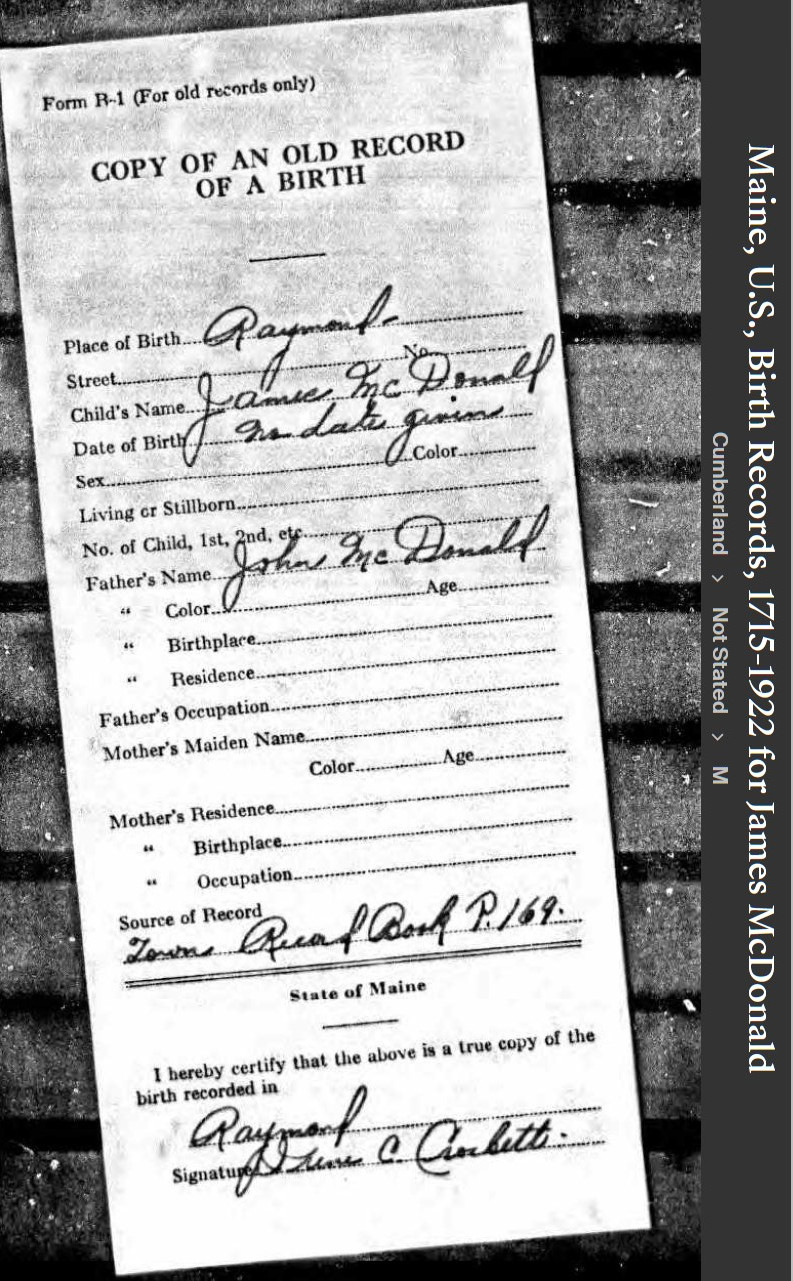 Form R-1 (For old records only)
COPY OF AN OLD RECORD
OF A BIRTH
Place of Birth Raymond-
Street No.
Child's Name James McDonald
Date of Birth no date givins
Sex Color
Living or Stillborn
No. of Child, 1st, 2nd, etc
Father's Name John McDonald
“ Color Age
“ Birthplace
“ Residence
Father's Occupation
Mother's Maiden Name
Color Age
Mother's Residence
“ Birthplace
“ Occupation
Source of Record
Towns Record Book P. 169.
State of Maine
I hereby certify that the above is a true copy of the
birth recorded in
Raymond
Signature Irene C. Crockett.
Maine, U.S., Birth Records, 1715-1922 for James McDonald
Cumberland > Not Stated > M